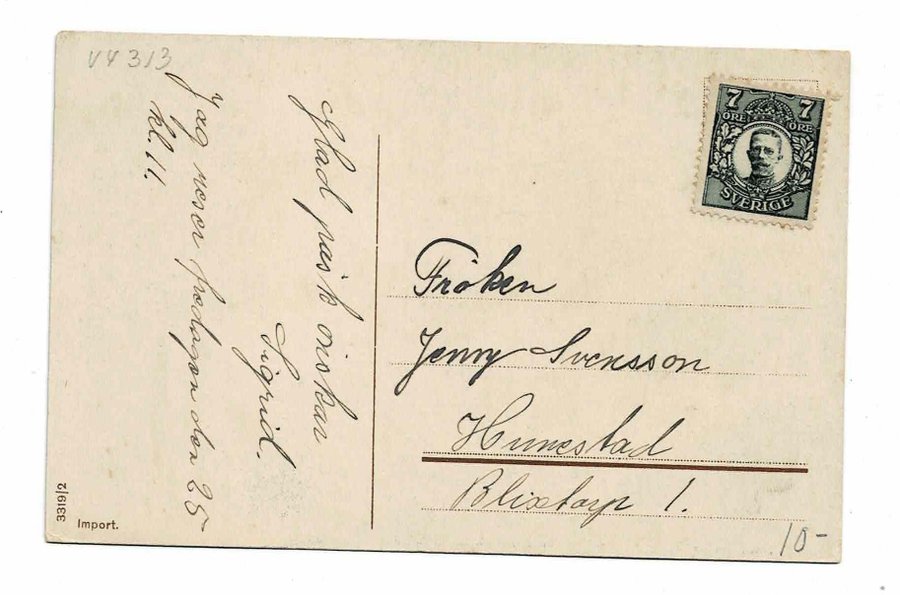 VV 313
Jag reser fredagen den 25
kl. 11.
Glad påsk önskar
Sigrid.
7 7
ÖRE ÖRE
SVERIGE
Fröken
Jenny Svensson
Hunestad
Blixtorp 1.
10-
3319/2
Import.